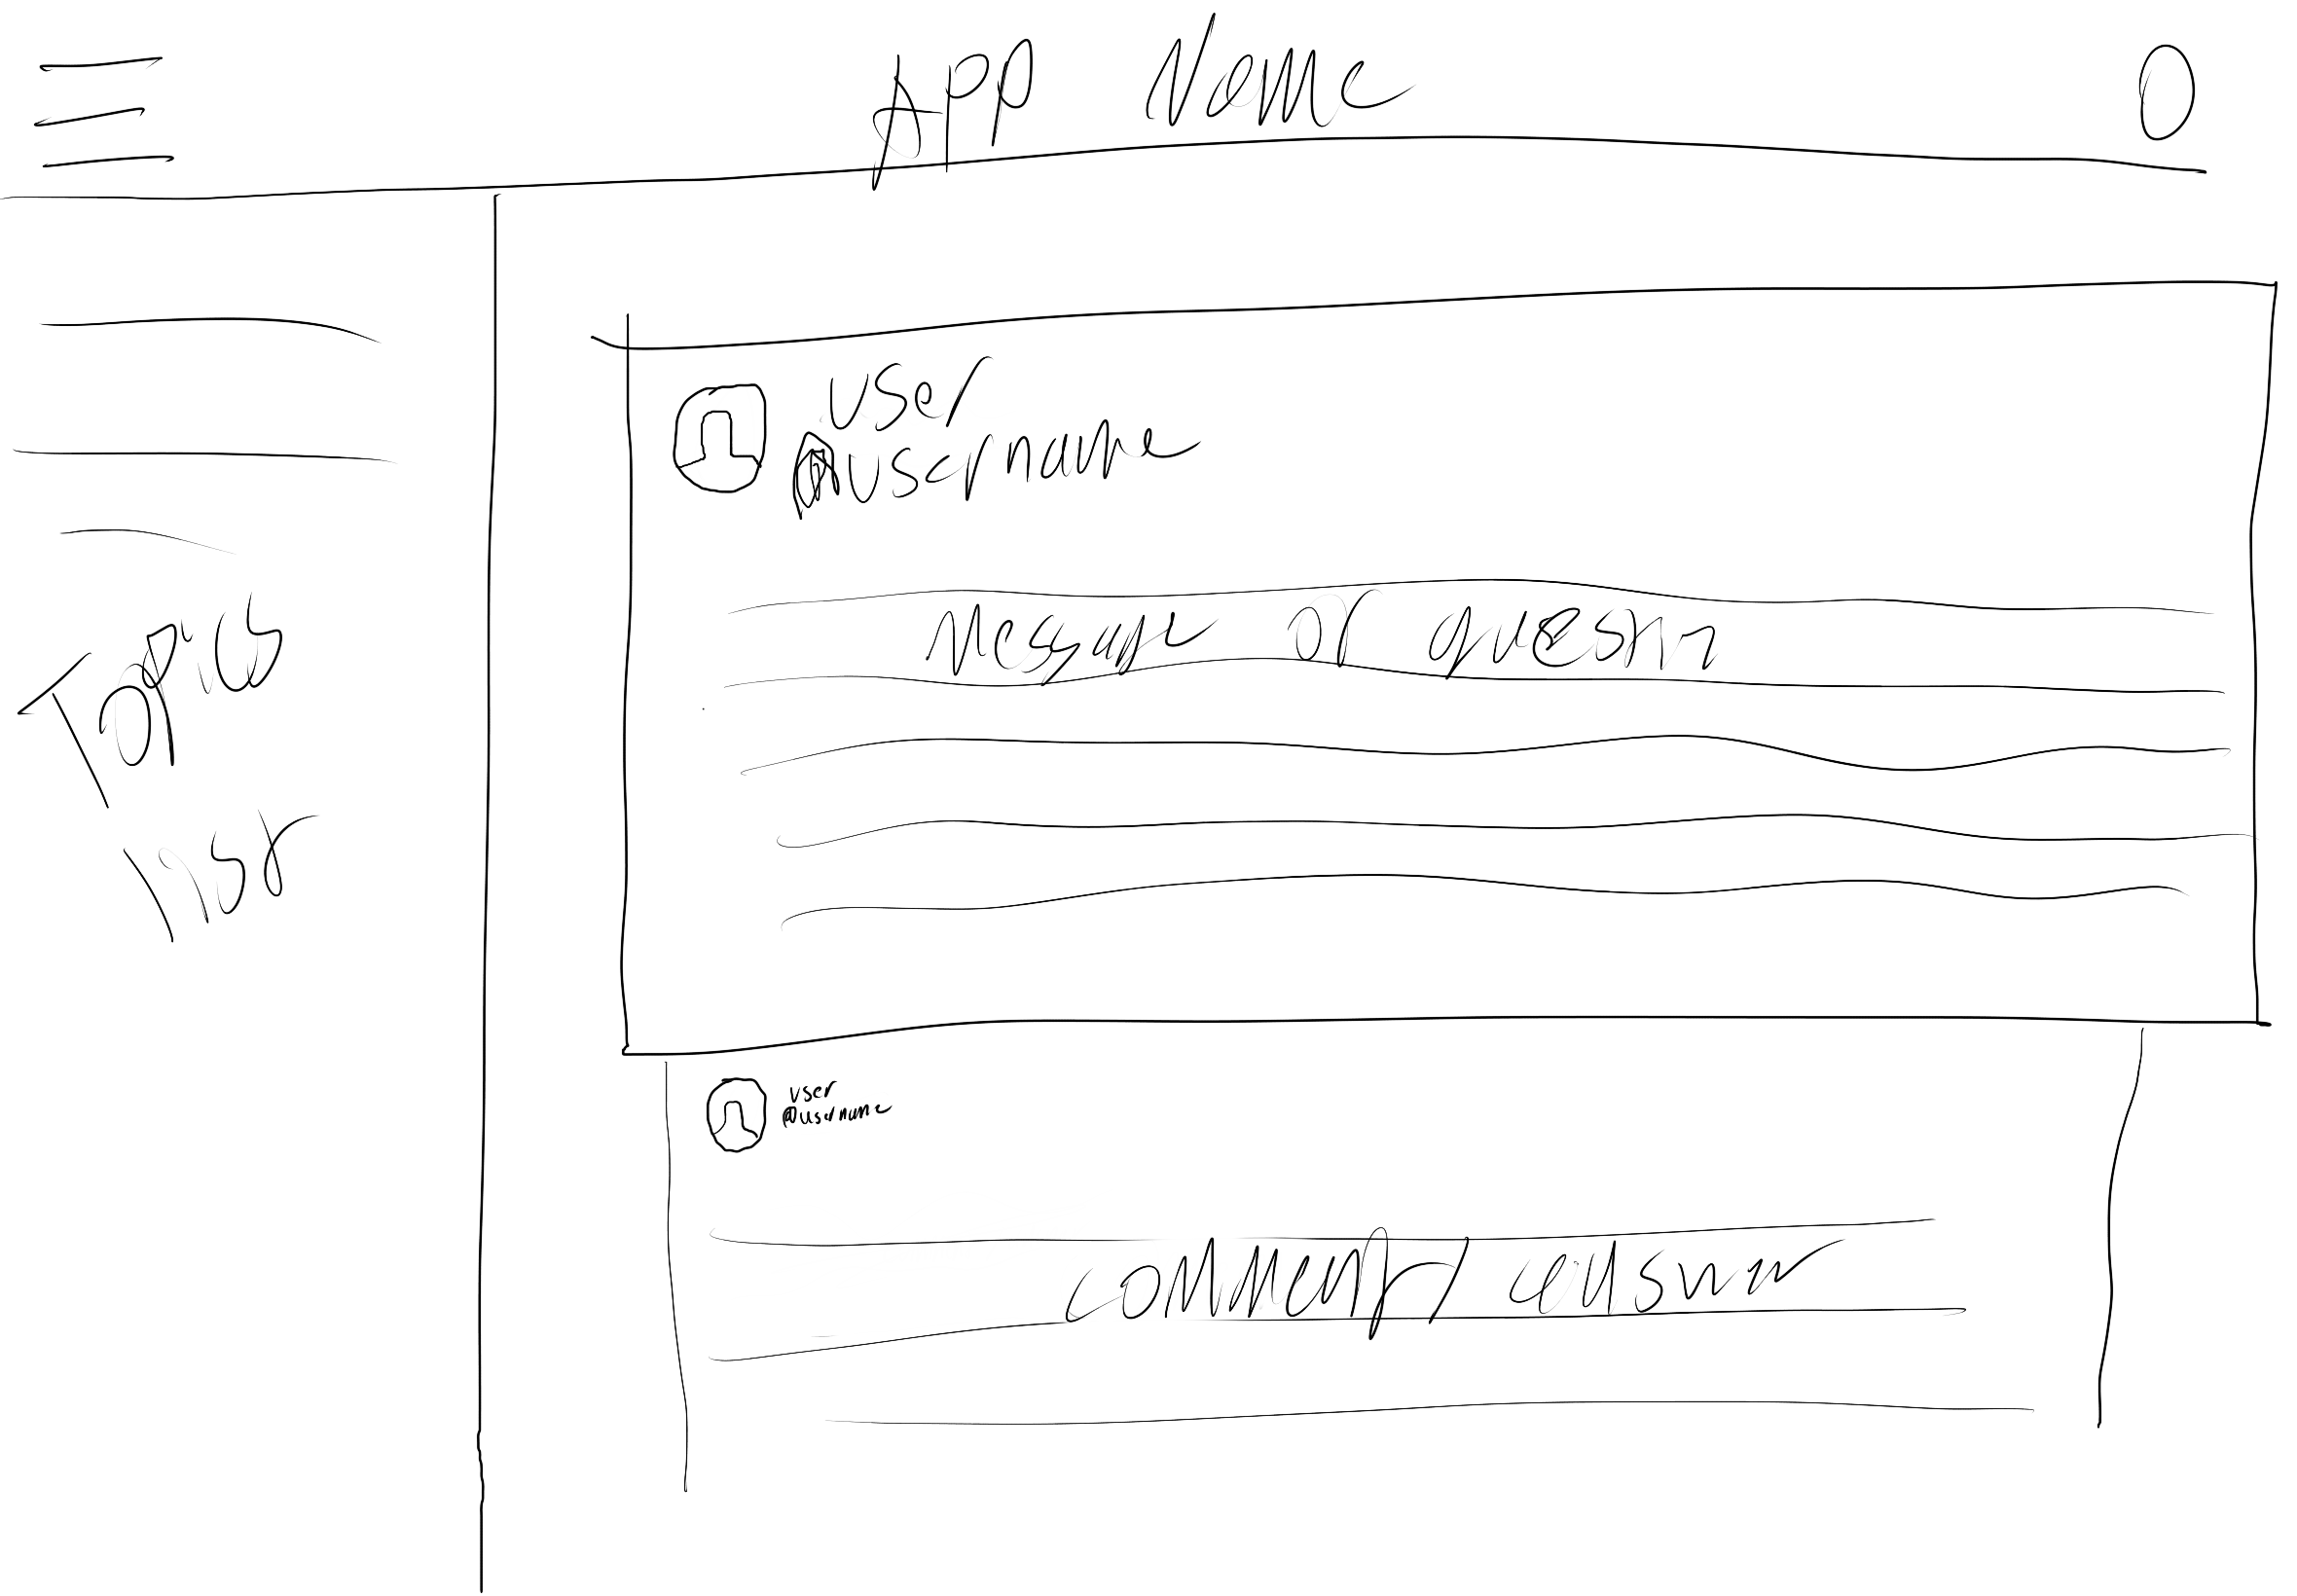 App Name
Topics
list
user
@username
Message or question
user
@username
comment/answer